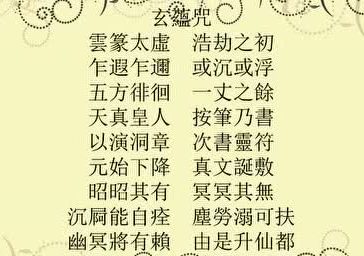 玄蘊咒
雲篆太虛　浩劫之初
乍遐乍邇　或沉或浮
五方徘徊　一丈之餘
天真皇人　按筆乃書
以演洞章　次書靈符
元始下降　真文誕敷
昭昭其有　冥冥其無
沉屙能自痊　塵勞溺可扶
幽冥將有賴　由是升仙都